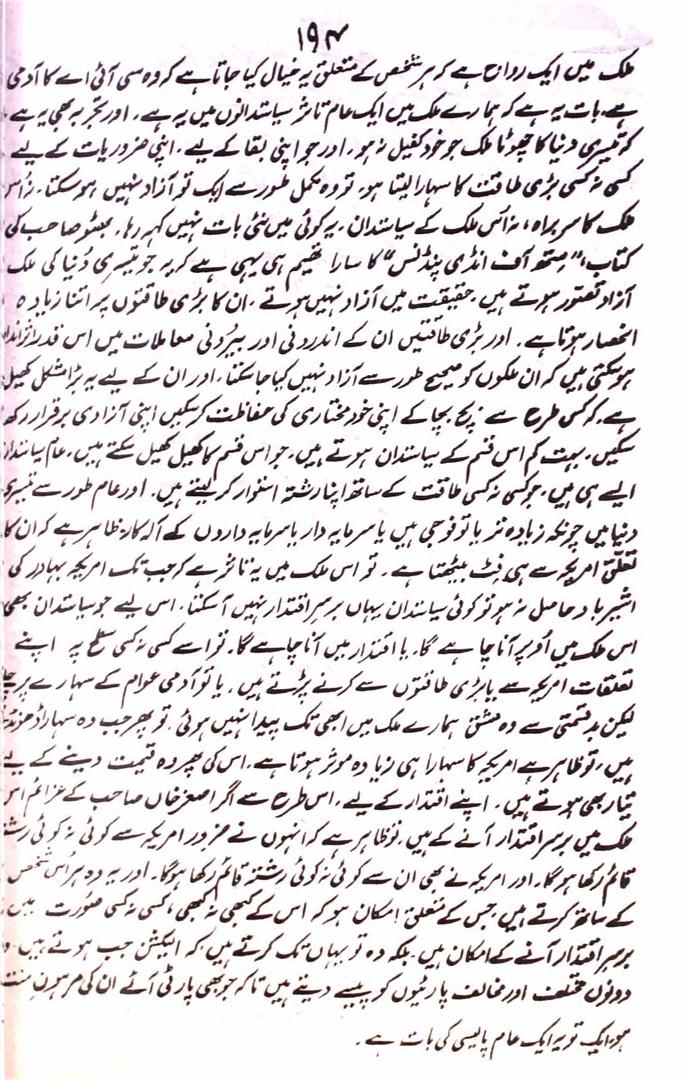 ۱۹۴
ملک میں ایک رواج ہے کہ ہر شخص کے متعلق یہ خیال کیا جاتا ہے کہ وہ سی آئی اے کا آدمی
ہے۔ بات یہ ہے کہ ہمارے ملک میں ایک عام تاثر سیاستدانوں میں یہ ہے۔ اور تجربہ بھی یہ ہے
کہ تیسری دنیا کا چھوٹا ملک جو خود کفیل نہ ہو، اور جو اپنی بقا کے لیے۔ اپنی ضروریات کے لیے
کسی نہ کسی بڑی طاقت کا سہارا لیتا ہو، تو وہ مکمل طور سے ایک تو آزاد نہیں ہو سکتا۔ نہ اُس
ملک کا سربراہ، نہ اُس ملک کے سیاستدان۔ یہ کوئی میں نئی بات نہیں کہہ رہا۔ بھٹو صاحب کی
کتاب، "متھ آف انڈی پینڈنس" کا سارا تھیم ہی یہی ہے کہ یہ جو تیسری دُنیا کی ملک
آزاد تصور ہوتے ہیں۔ حقیقت میں آزاد نہیں ہوتے۔ ان کا بڑی طاقتوں پر اتنا زیادہ
انحصار ہوتا ہے۔ اور بڑی طاقتیں ان کے اندرونی اور بیرُونی معاملات میں اس قدر اثرانداز
ہو سکتی ہیں کہ ان ملکوں کو صحیح طور سے آزاد نہیں کیا جا سکتا۔ اور ان کے لیے یہ بڑا مشکل کھیل
ہے۔ کہ کسی طرح سے بچ بچا کے اپنی خود مختاری کی حفاظت کر سکیں اپنی آزادی برقرار رکھ
سکیں۔ بہت کم اس قسم کے سیاستدان ہوتے ہیں۔ جو اس قسم کا کھیل کھیل سکتے ہیں۔ عام سیاستدان
ایسے ہی ہیں۔ جو کسی نہ کسی طاقت کے ساتھ اپنا رشتہ استوار کر لیتے ہیں۔ اور عام طور سے تیسری
دنیا میں چونکہ زیادہ تر یا تو فوجی ہیں یا سرمایہ دار یا سرمایہ داروں کے آلہ کار، ظاہر ہے کہ ان کا
تعلق امریکہ سے ہی فِٹ بیٹھتا ہے۔ تو اس ملک میں یہ تاثر ہے کہ جب تک امریکہ بہادر کی
اشیر باد حاصل نہ ہو تو کوئی سیاستدان یہاں برسرِ اقتدار نہیں آ سکتا۔ اس لیے جو سیاستدان بھی
اس ملک میں اُوپر آنا چاہے گا۔ یا اقتدار میں آنا چاہے گا۔ تو اسے کسی نہ کسی سطح پہ اپنے
تعلقات امریکہ سے یا بڑی طاقتوں سے کرنے پڑتے ہیں۔ یا تو آدمی عوام کے سہارے پر
لیکن بدقسمتی سے وہ مشق ہمارے ملک میں ابھی تک پیدا نہیں ہوئی، تو پھر جب وہ سہارا ڈھونڈتے
ہیں، تو ظاہر ہے امریکہ کا سہارا ہی زیادہ موثر ہوتا ہے۔ اس کی پھر وہ قیمت دینے کے لیے
تیار بھی ہوتے ہیں۔ اپنے اقتدار کے لیے، اس طرح سے اگر اصغر خاں صاحب کے عزائم اس
ملک میں برسرِ اقتدار آنے کے ہیں، تو ظاہر ہے کہ انہوں نے ضرور امریکہ سے کوئی نہ کوئی رشتہ
قائم رکھا ہوگا۔ اور امریکہ نے بھی ان سے کوئی نہ کوئی رشتہ قائم رکھا ہوگا۔ اور یہ وہ ہر اُس شخص
کے ساتھ کرتے ہیں، جس کے متعلق امکان ہو کہ اس کے کبھی نہ کبھی، کسی نہ کسی صُورت میں
برسرِ اقتدار آنے کے امکان ہیں۔ بلکہ وہ تو یہاں تک کرتے ہیں کہ الیکشن جب ہوتے ہیں۔ وہ
دونوں مختلف اور مخالف پارٹیوں کو پیسے دیتے ہیں تاکہ جو بھی پارٹی آئے ان کی مرہونِ منت
ہو، ایک تو یہ ایک عام پالیسی کی بات ہے۔